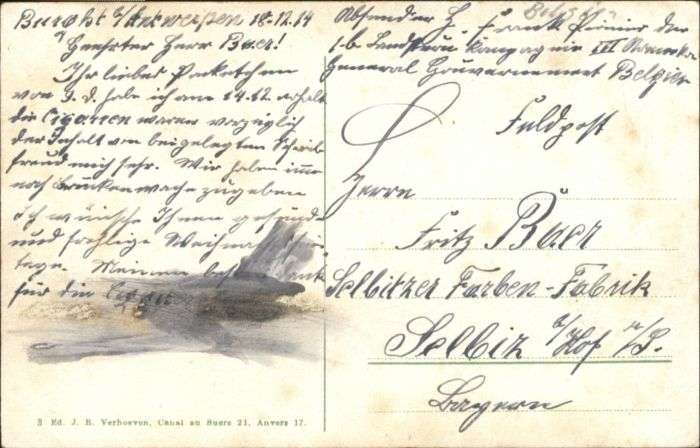 Burcht b/Antwerpen 18.12.14
Geehrter Herr Baer!
Ihr liebes Packetchen
von 9. d. habe ich am 14.12 erhalt
die Cigarren waren vorzüglich
der Inhalt von beigelegten Schreib
freud mich sehr. Wir haben imm
noch Brückenwache zugeben
Ich wünsche Ihnen gesund
und frohlige Weihnachtsfeier
tage. Meinen besten Dank
für die
Absender H. Frank Pionier der
1.b. Landsturm Kompagnie III Armeekor
General Gouvernement Belgien
Belgien
Feldpost
Herrn
Fritz Baer
Selbitzer Farben-Fabrik
Selbiz b/Hof a/S.
Bayern
3 Ed. J. B. Verhoeven, Canal au Sucre 21, Anvers 17.